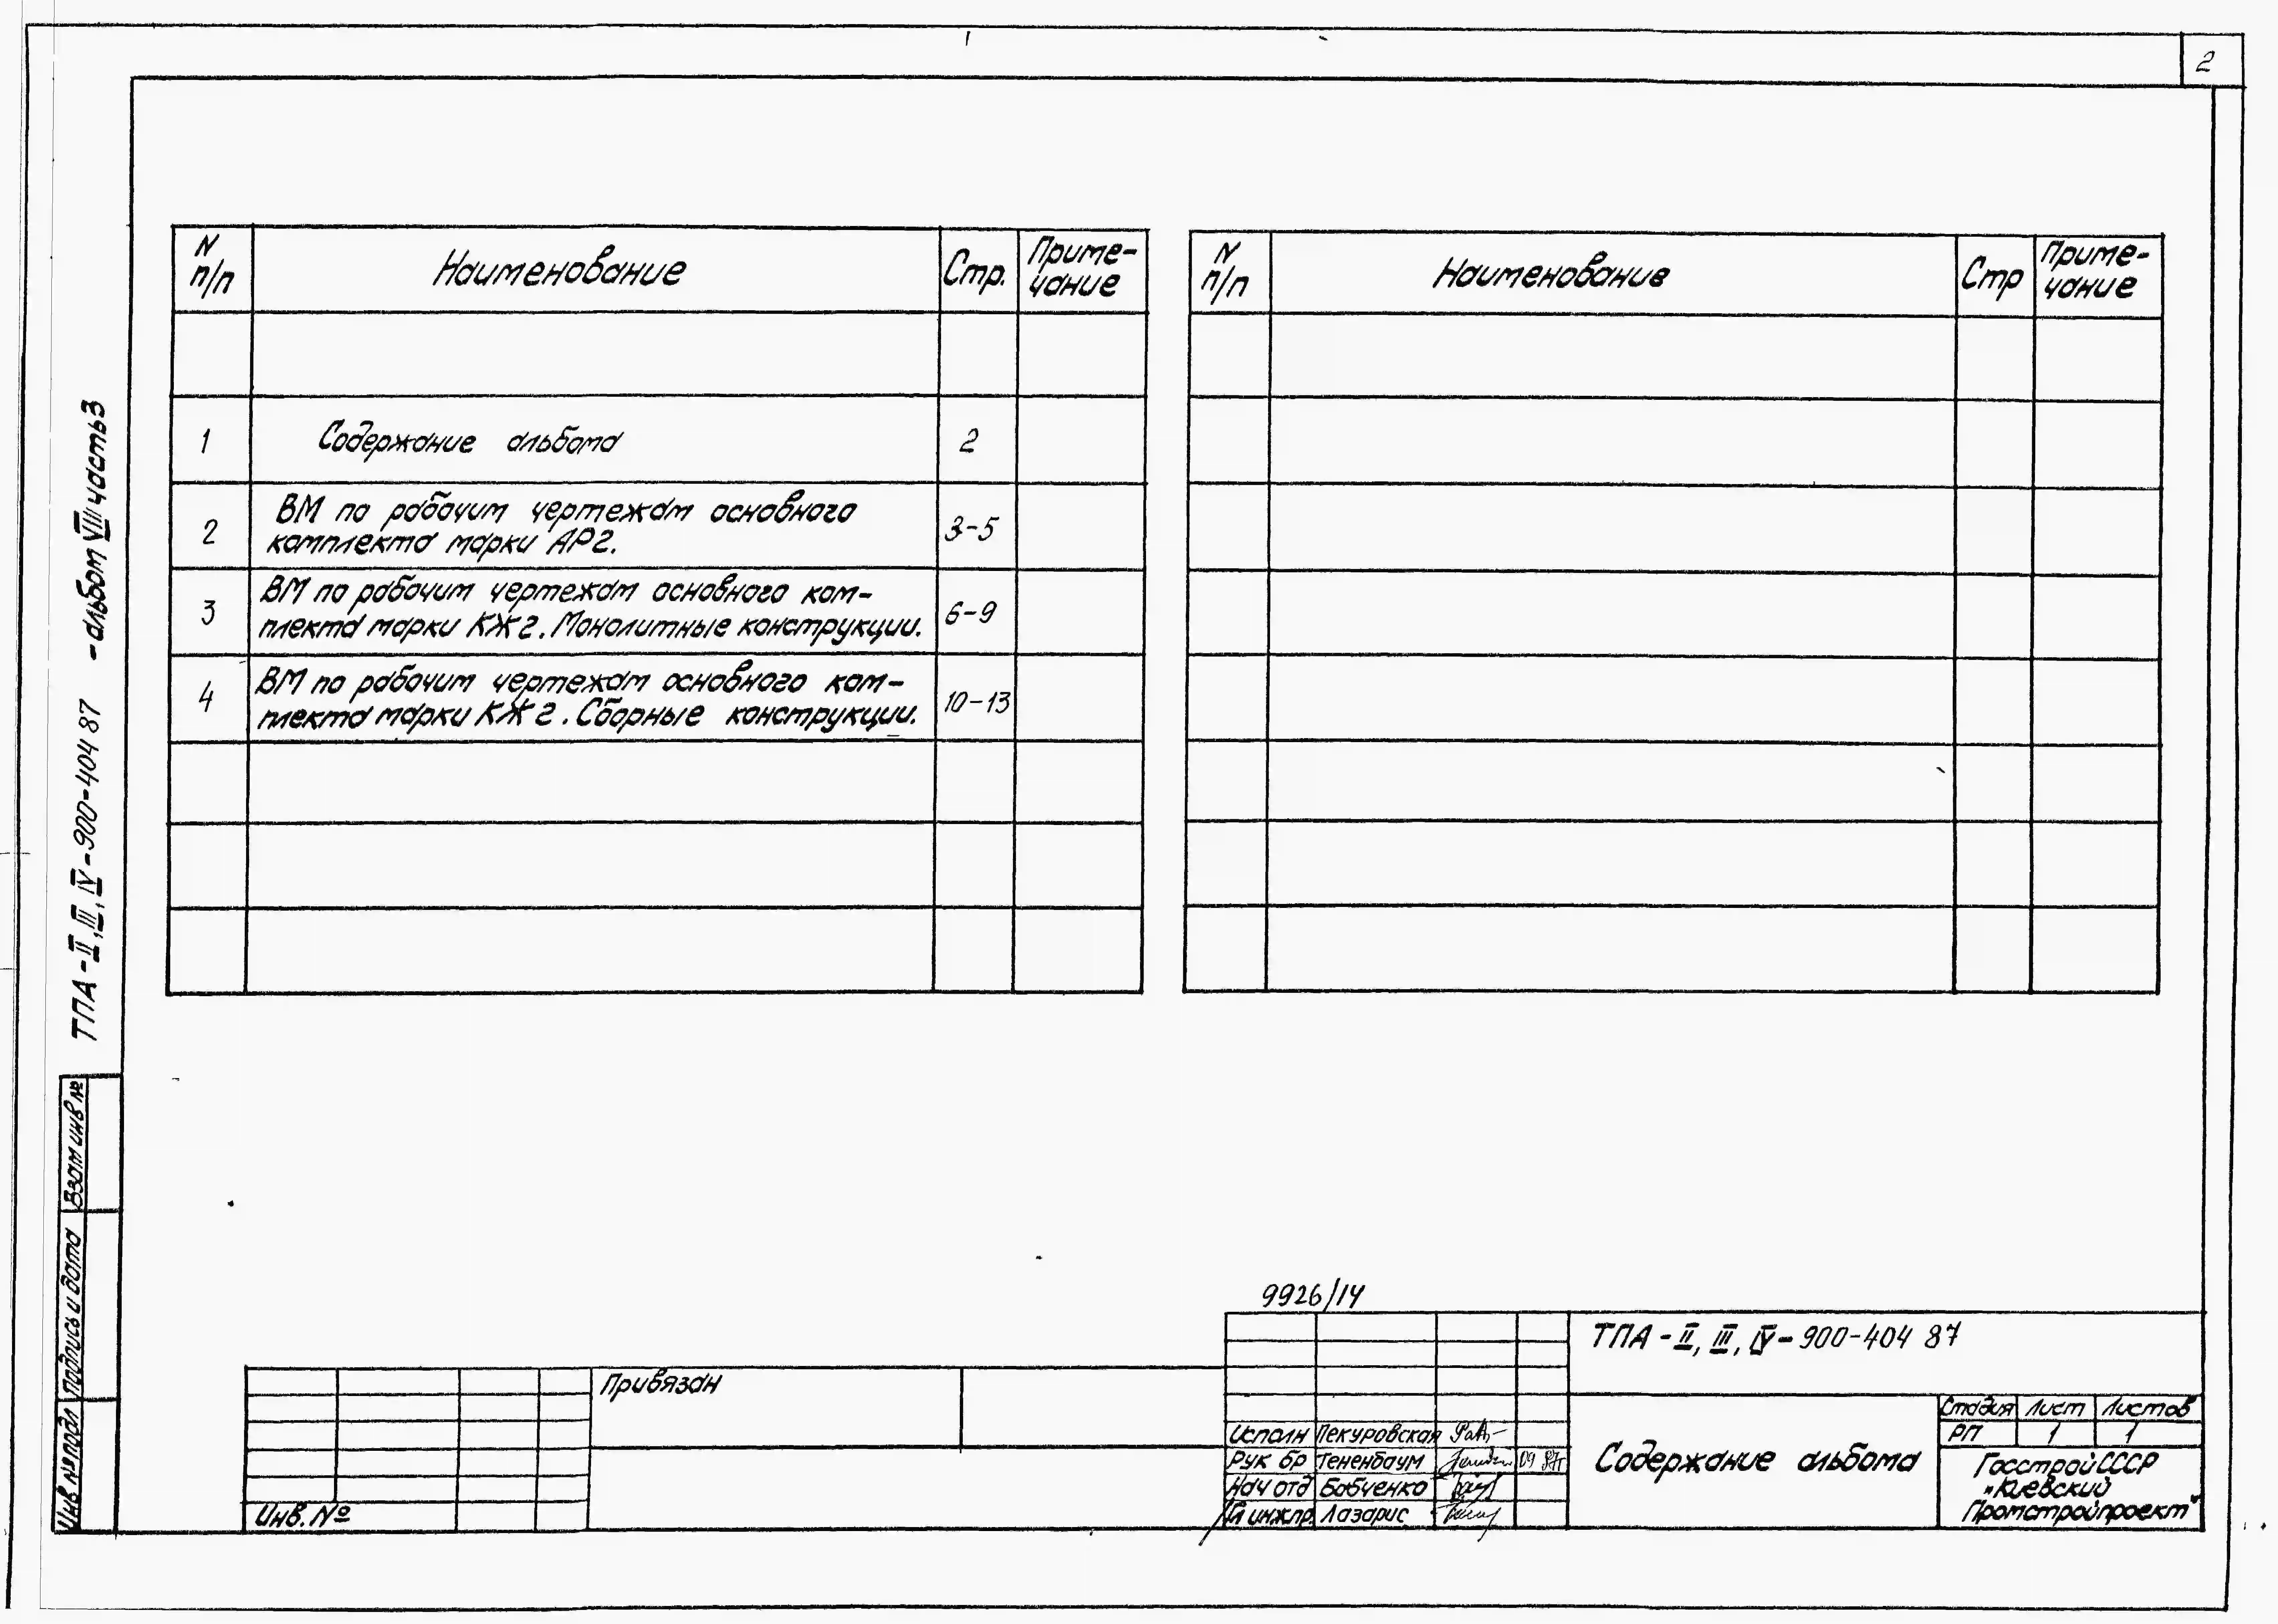 2
N п/п
Наименование
Стр.
Приме-
чание
1
Содержание альбома
2
2
ВМ по рабочим чертежам основного
комплекта марки АР2.
3-5
3
ВМ по рабочим чертежам основного ком-
плекта марки КЖ2. Монолитные конструкции.
6-9
4
ВМ по рабочим чертежам основного ком-
плекта марки КЖ2. Сборные конструкции.
10-13
N п/п
Наименование
Стр
Приме-
чание
ТПА-II, III, IV-900-404 87 -альбом VIII часть3
Взам инв №
Подпись и дата
Инв № подл
9926/14
Привязан
Инв. №
ТПА-II, III, IV-900-404 87
Исполн Пекуровская
Рук бр Тененбаум 09 87г
Нач отд Бабченко
Гл инж пр. Лазарис
Содержание альбома
Стадия Лист Листов
РП 1 1
Госстрой СССР
"Киевский
Промстройпроект"